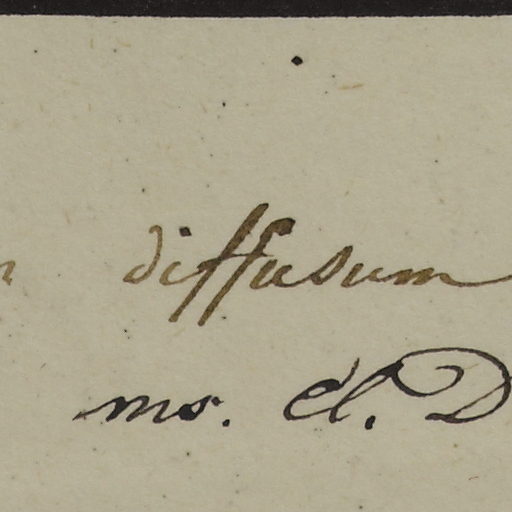 diffusum
ms. Cl. D